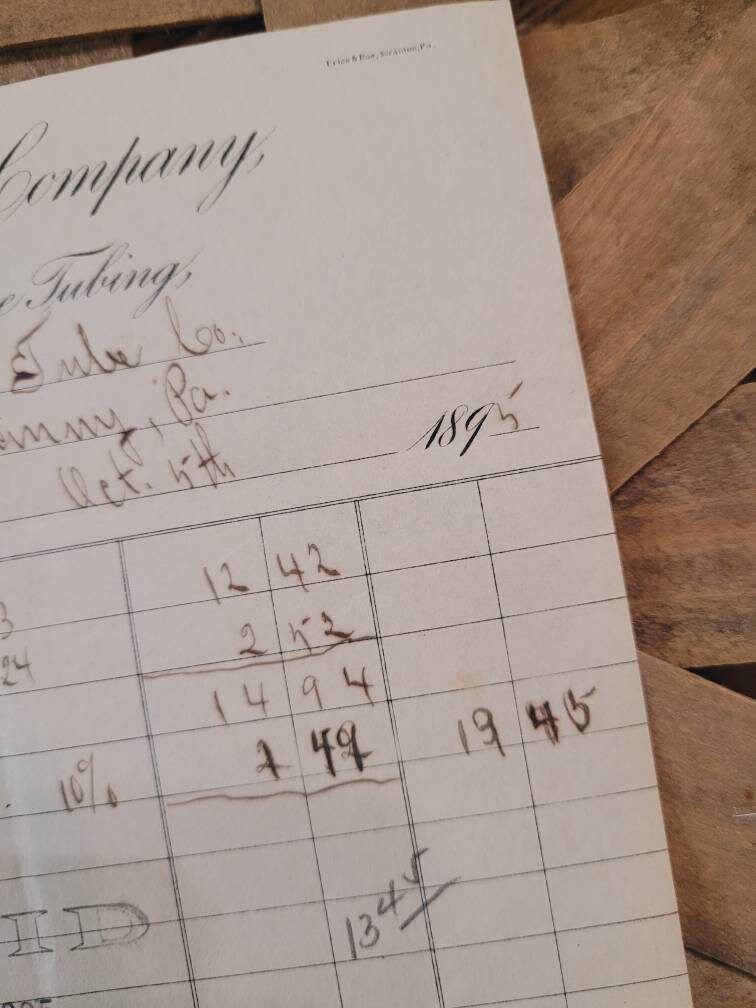 Price & Roe, Scranton, Pa.
Company,
e Tubing,
Tube Co.
Pa.
Oct. 5th 1895
12 42
3
2 52
24
14 94
10% 1 49 13 45
13 45
ID